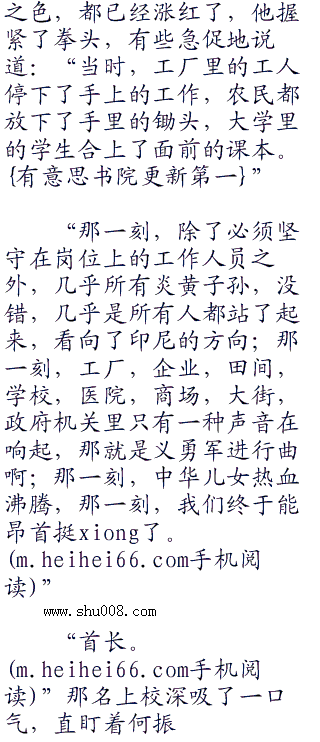 之色，都已经涨红了，他握
紧了拳头，有些急促地说
道：“当时，工厂里的工人
停下了手上的工作，农民都
放下了手里的锄头，大学里
的学生合上了面前的课本。
{有意思书院更新第一}”
“那一刻，除了必须坚
守在岗位上的工作人员之
外，几乎所有炎黄子孙，没
错，几乎是所有人都站了起
来，看向了印尼的方向；那
一刻，工厂，企业，田间，
学校，医院，商场，大街，
政府机关里只有一种声音在
响起，那就是义勇军进行曲
啊；那一刻，中华儿女热血
沸腾，那一刻，我们终于能
昂首挺xiong了。
(m.heihei66.com手机阅
读)”
www.shu008.com
“首长。
(m.heihei66.com手机阅
读)”那名上校深吸了一口
气，直盯着何振